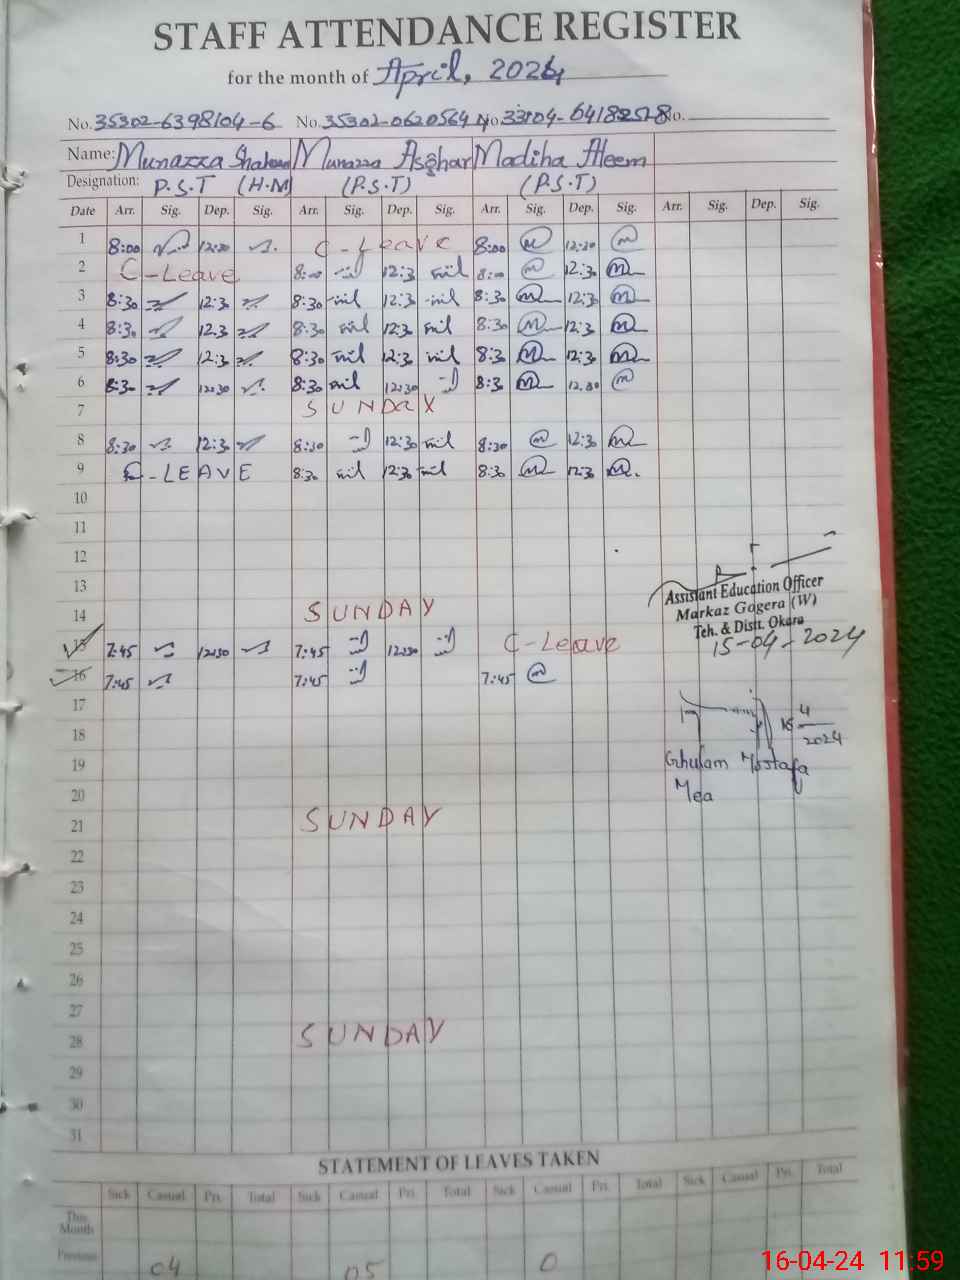 STAFF ATTENDANCE REGISTER
for the month of April, 2024
No. 35302-6398104-6 No. 35302-0620564 No 33104-6418252-8 No.
Name: Munazza Shaheen Munazza Asghar Madiha Aleem
Designation: P.S.T (H.M) (P.S.T) (P.S.T)
Date Arr. Sig. Dep. Sig. Arr. Sig. Dep. Sig. Arr. Sig. Dep. Sig. Arr. Sig. Dep. Sig.
1 8:00 12:30 C-Leave 8:00 12:30
2 C-Leave 8:00 12:3 8:00 12:3
3 8:30 12:3 8:30 12:3 8:30 12:3
4 8:30 12.3 8:30 12:3 8:30 12:3
5 8:30 12:3 8:30 12:3 8:3 12:3
6 8:30 12:30 8:30 12:30 8:30 12.30
7 SUNDAY
8 8:30 12:3 8:30 12:30 8:30 12:3
9 C-LEAVE 8:30 12:30 8:30 12:3
10
11
12
13
Assistant Education Officer
Markaz Gogera (W)
14 SUNDAY
Teh. & Distt. Okara
15-04-2024
15 7:45 12:30 7:45 12:30 C-Leave
16 7:45 7:45 7:45
17
16 4
2024
18
19
Ghulam Mostafa
Mea
20
21 SUNDAY
22
23
24
25
26
27
28 SUNDAY
29
30
31
STATEMENT OF LEAVES TAKEN
Sick Casual Pri. Total Sick Casual Pri. Total Sick Casual Pri. Total Sick Casual Pri. Total
This Month
Previous 04 05 0
16-04-24 11:59